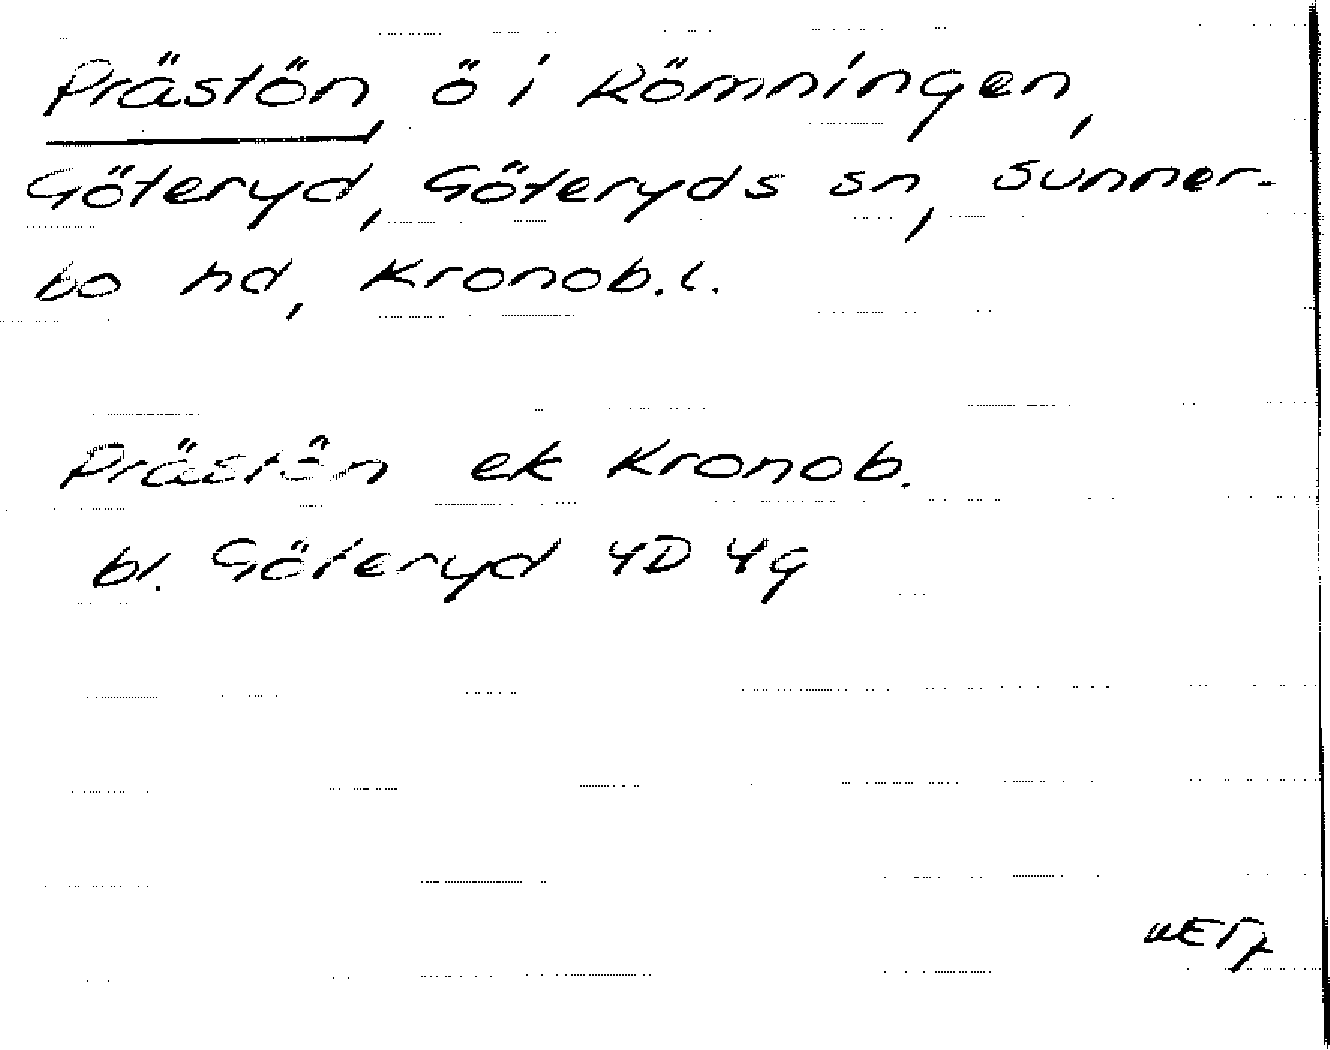 Prästön, ö i Römningen,
Göteryd, Göteryds sn, Sunner-
bo hd, Kronob.l.
Prästön ek Kronob.
bl. Göteryd 4D 4g